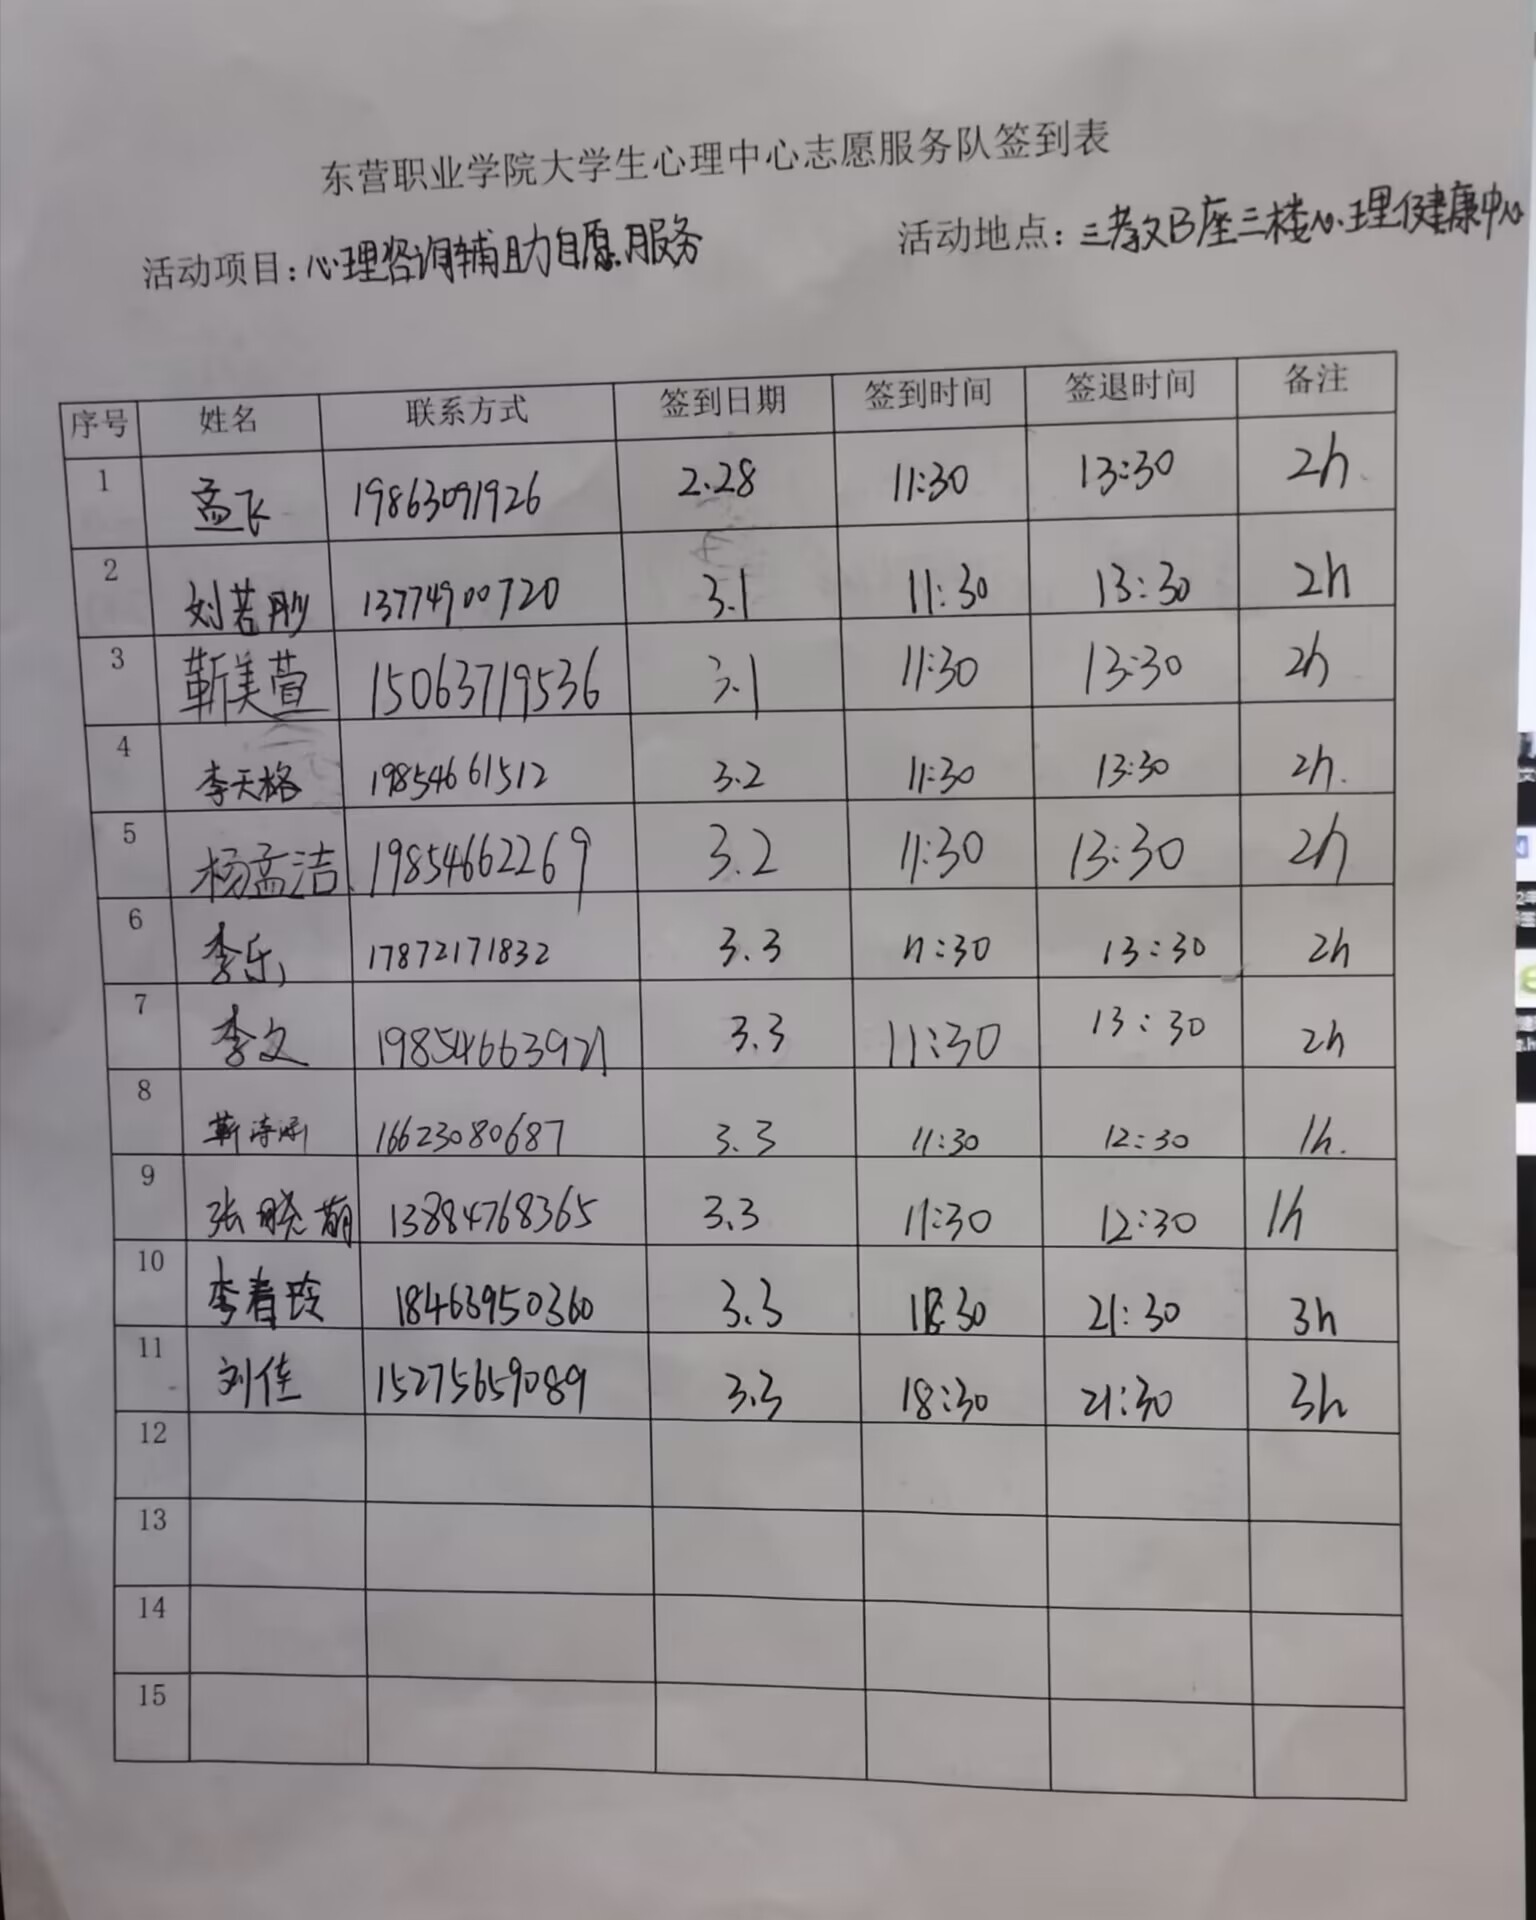 东营职业学院大学生心理中心志愿服务队签到表
活动项目：心理咨询辅助自愿服务 活动地点：三教B座三楼心理健康中心
序号 姓名 联系方式 签到日期 签到时间 签退时间 备注
1 孟飞 19863091926 2.28 11:30 13:30 2h
2 刘若彤 13774900720 3.1 11:30 13:30 2h
3 靳美萱 15063719536 3.1 11:30 13:30 2h
4 李天格 19854661512 3.2 11:30 13:30 2h.
5 杨孟洁 19854662269 3.2 11:30 13:30 2h
6 李乐 17872171832 3.3 11:30 13:30 2h
7 李文 19854663921 3.3 11:30 13:30 2h
8 靳诗涵 16623080687 3.3 11:30 12:30 1h.
9 张晓萌 13884768365 3.3 11:30 12:30 1h
10 李春玲 18463950360 3.3 18:30 21:30 3h
11 刘佳 15275659089 3.3 18:30 21:30 3h
12
13
14
15